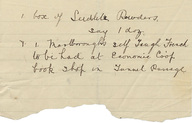 1 box of Seidlitz Powders.
say 1 doz.
& 1 Marlborough's Self Taught
to be had at Economic Coop
book shop on Tunnel Passage